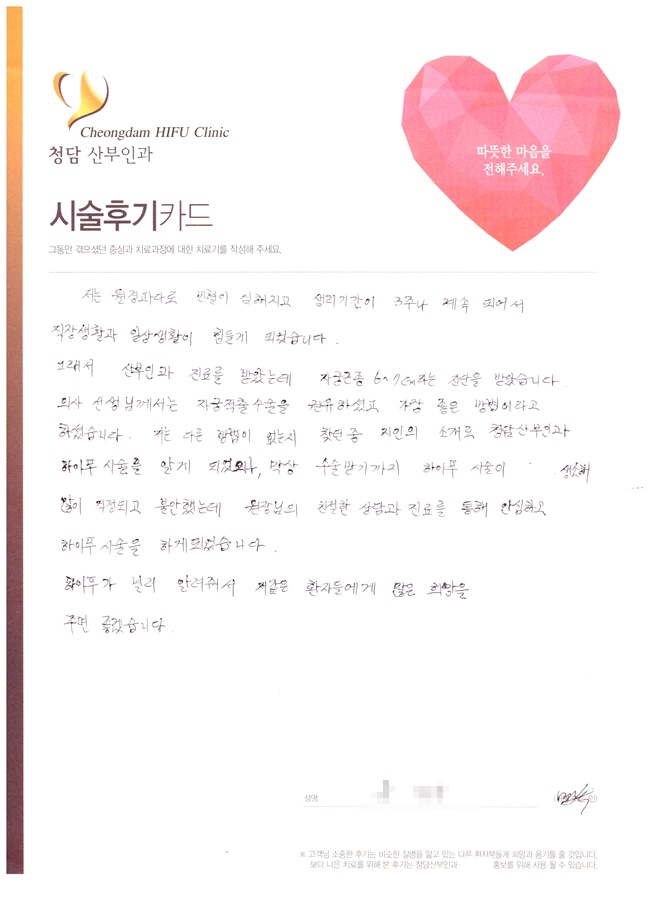 Cheongdam HIFU Clinic
청담 산부인과
따뜻한 마음을
전해주세요.
시술후기카드
그동안 겪으셨던 증상과 치료과정에 대한 치료기를 작성해 주세요.
저는 월경과다로 빈혈이 심해지고 생리기간이 3주나 계속 되어서
직장생활과 일상생활이 힘들게 되었습니다.
그래서 산부인과 진료를 받았는데 자궁근종 6~7cm라는 진단을 받았습니다.
의사 선생님께서는 자궁적출수술을 권유하셨고 가장 좋은 방법이라고
하셨습니다. 저는 다른 방법이 없는지 찾던중 지인의 소개로 청담산부인과
하이푸 시술을 알게 되었으나, 막상 수술받기까지 하이푸 시술이 생소해
많이 걱정되고 불안했는데 원장님의 친절한 상담과 진료를 통해 안심하고
하이푸 시술을 하게되었습니다.
하이푸가 널리 알려줘서 저같은 환자들에게 많은 희망을
주면 좋겠습니다.
성명
※ 고객님 소중한 후기는 비슷한 질병을 앓고 있는 다른 환자분들게 희망과 용기를 줄 것입니다.
보다 나은 치료를 위해 본 후기는 청담산부인과· 홍보를 위해 사용 될 수 있습니다.